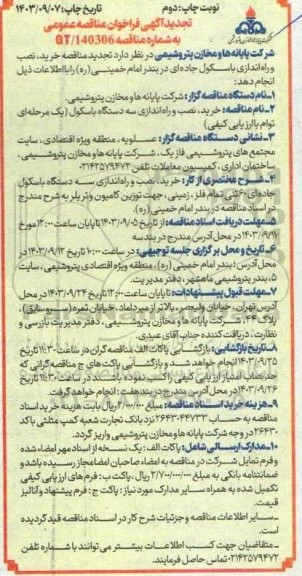 نوبت چاپ: دوم
تاریخ چاپ: ۱۴۰۳/۰۹/۰۷
تجدید آگهی فراخوان مناقصه عمومی
به شماره مناقصه GT/140306
شرکت پایانه ها و مخازن پتروشیمی در نظر دارد تجدید مناقصه خرید، نصب
و راه اندازی باسکول جاده ای در بندر امام خمینی (ره) را با اطلاعات ذیل
انجام دهد:
۱-نام دستگاه مناقصه گزار: شرکت پایانه ها و مخازن پتروشیمی.
۲-نام مناقصه: خرید، نصب و راه اندازی سه دستگاه باسکول (یک مرحله ای
توام با ارزیابی کیفی)
۳-نشانی دستگاه مناقصه گزار: عسلویه، منطقه ویژه اقتصادی، سایت
مجتمع های پتروشیمی فاز یک، شرکت پایانه ها و مخازن پتروشیمی،
ساختمان اداری، کمیسیون معاملات تلفن ۰۲۱۴۲۵۷۹۴۷۲
۴-شرح مختصری از کار: خرید، نصب و راه اندازی سه دستگاه باسکول
جاده ای تنی تمام فلز، زمینی، جهت توزین کامیون و تریلر به شرح مندرج
در اسناد مناقصه در بندر امام خمینی (ره).
۵-مهلت دریافت اسناد مناقصه: از تاریخ ۱۴۰۳/۰۹/۰۵ تا پایان ساعت ۱۲:۰۰ مورخ
۱۴۰۳/۰۹/۱۱ در محل آدرس مندرج در بند سه
۶-تاریخ و محل برگزاری جلسه توجیهی: در ساعت ۱۰:۰۰ تاریخ ۱۴۰۳/۰۹/۱۲ در
محل آدرس: بندر امام خمینی (ره)، منطقه ویژه اقتصادی پتروشیمی، سایت
۵، بندر پتروشیمی ماهشهر، دفتر مدیریت.
۷-مهلت قبول پیشنهادات: تا پایان ساعت ۱۲:۰۰ تاریخ ۱۴۰۳/۰۹/۲۴ در محل
آدرس تهران، خیابان ولیعصر، بالاتر از میرداماد، خیابان قبادیان
پلاک ۴۴، شرکت پایانه ها و مخازن پتروشیمی، دفتر مدیریت بازرسی و
نظارت، دریافت کننده جناب آقای عبدی
۸-تاریخ بازگشایی: بازگشایی پاکات الف مناقصه گران در ساعت ۱۱:۳۰ تاریخ
۱۴۰۳/۰۹/۲۵ انجام خواهد شد و بازگشایی پاکت های ج مناقصه گرانی که
حد نصاب امتیاز ارزیابی کیفی را کسب نموده باشند در ساعت ۱۱:۳۰ تاریخ
۱۴۰۳/۰۹/۲۶ در محل آدرس مندرج در بند هفت، انجام خواهد گرفت.
۹-هزینه خرید اسناد مناقصه: مبلغ ۲/۰۰۰/۰۰۰ ریال بابت هزینه خرید اسناد
مناقصه به حساب ۲۶۴۳۰۴۴۷۳۳ نزد بانک تجارت شعبه کمپ مثلثی با کد
۲۶۴۳۰ در وجه شرکت پایانه ها و مخازن پتروشیمی واریز گردد.
۱۰-مدارک ارسالی شامل: پاکت الف: یک نسخه از اسناد مهر امضاء شده
و فرم تمایل شرکت در مناقصه به امضاء صاحبان امضا مجاز رسیده باشد و
ضمانتنامه بانکی به مبلغ ریال، پاکت ب: فرم های ارزیابی کیفی
تکمیل شده به همراه سایر مدارک مورد نیاز: پاکت ج: فرم پیشنهاد و آنالیز
قیمت.
-سایر اطلاعات مناقصه و جزئیات شرح کار در اسناد مناقصه قید گردیده
است.
-متقاضیان جهت کسب اطلاعات بیشتر می توانند با شماره تلفن
۰۲۱۴۲۵۷۹۴۷۲ تماس حاصل فرمایند.